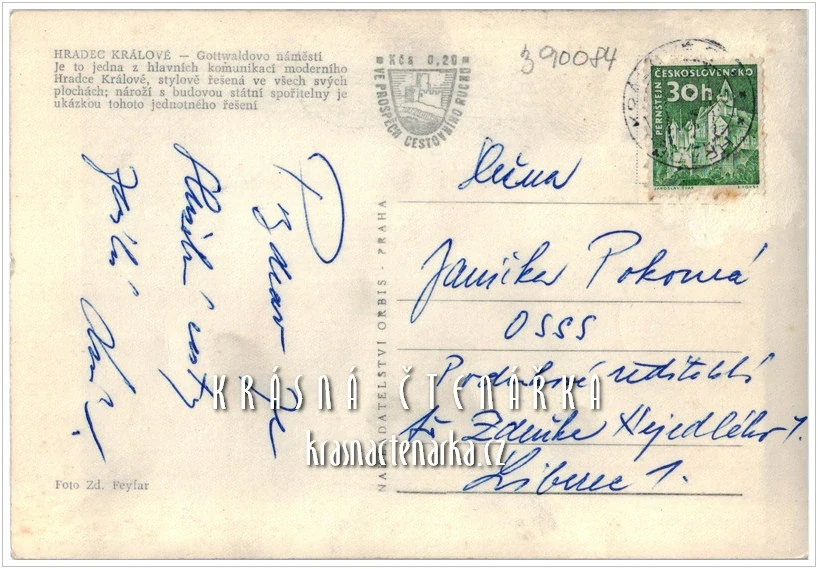 HRADEC KRÁLOVÉ — Gottwaldovo náměstí
Je to jedna z hlavních komunikací moderního
Hradce Králové, stylově řešená ve všech svých
plochách; nároží s budovou státní spořitelny je
ukázkou tohoto jednotného řešení
Kčs 0,20
VE PROSPĚCH CESTOVNÍHO RUCHU
390084
ČESKOSLOVENSKO
30h
PERNŠTEJN
Pozdrav ze
služební cesty
Slečna
Janička Pokorná
OSSS
Podnikové ředitelství
tř. Zdeňka Nejedlého 1.
Liberec 1.
NAKLADATELSTVÍ ORBIS - PRAHA
Foto Zd. Feyfar
KRÁSNÁ ČTENÁŘKA
krasnactenarka.cz